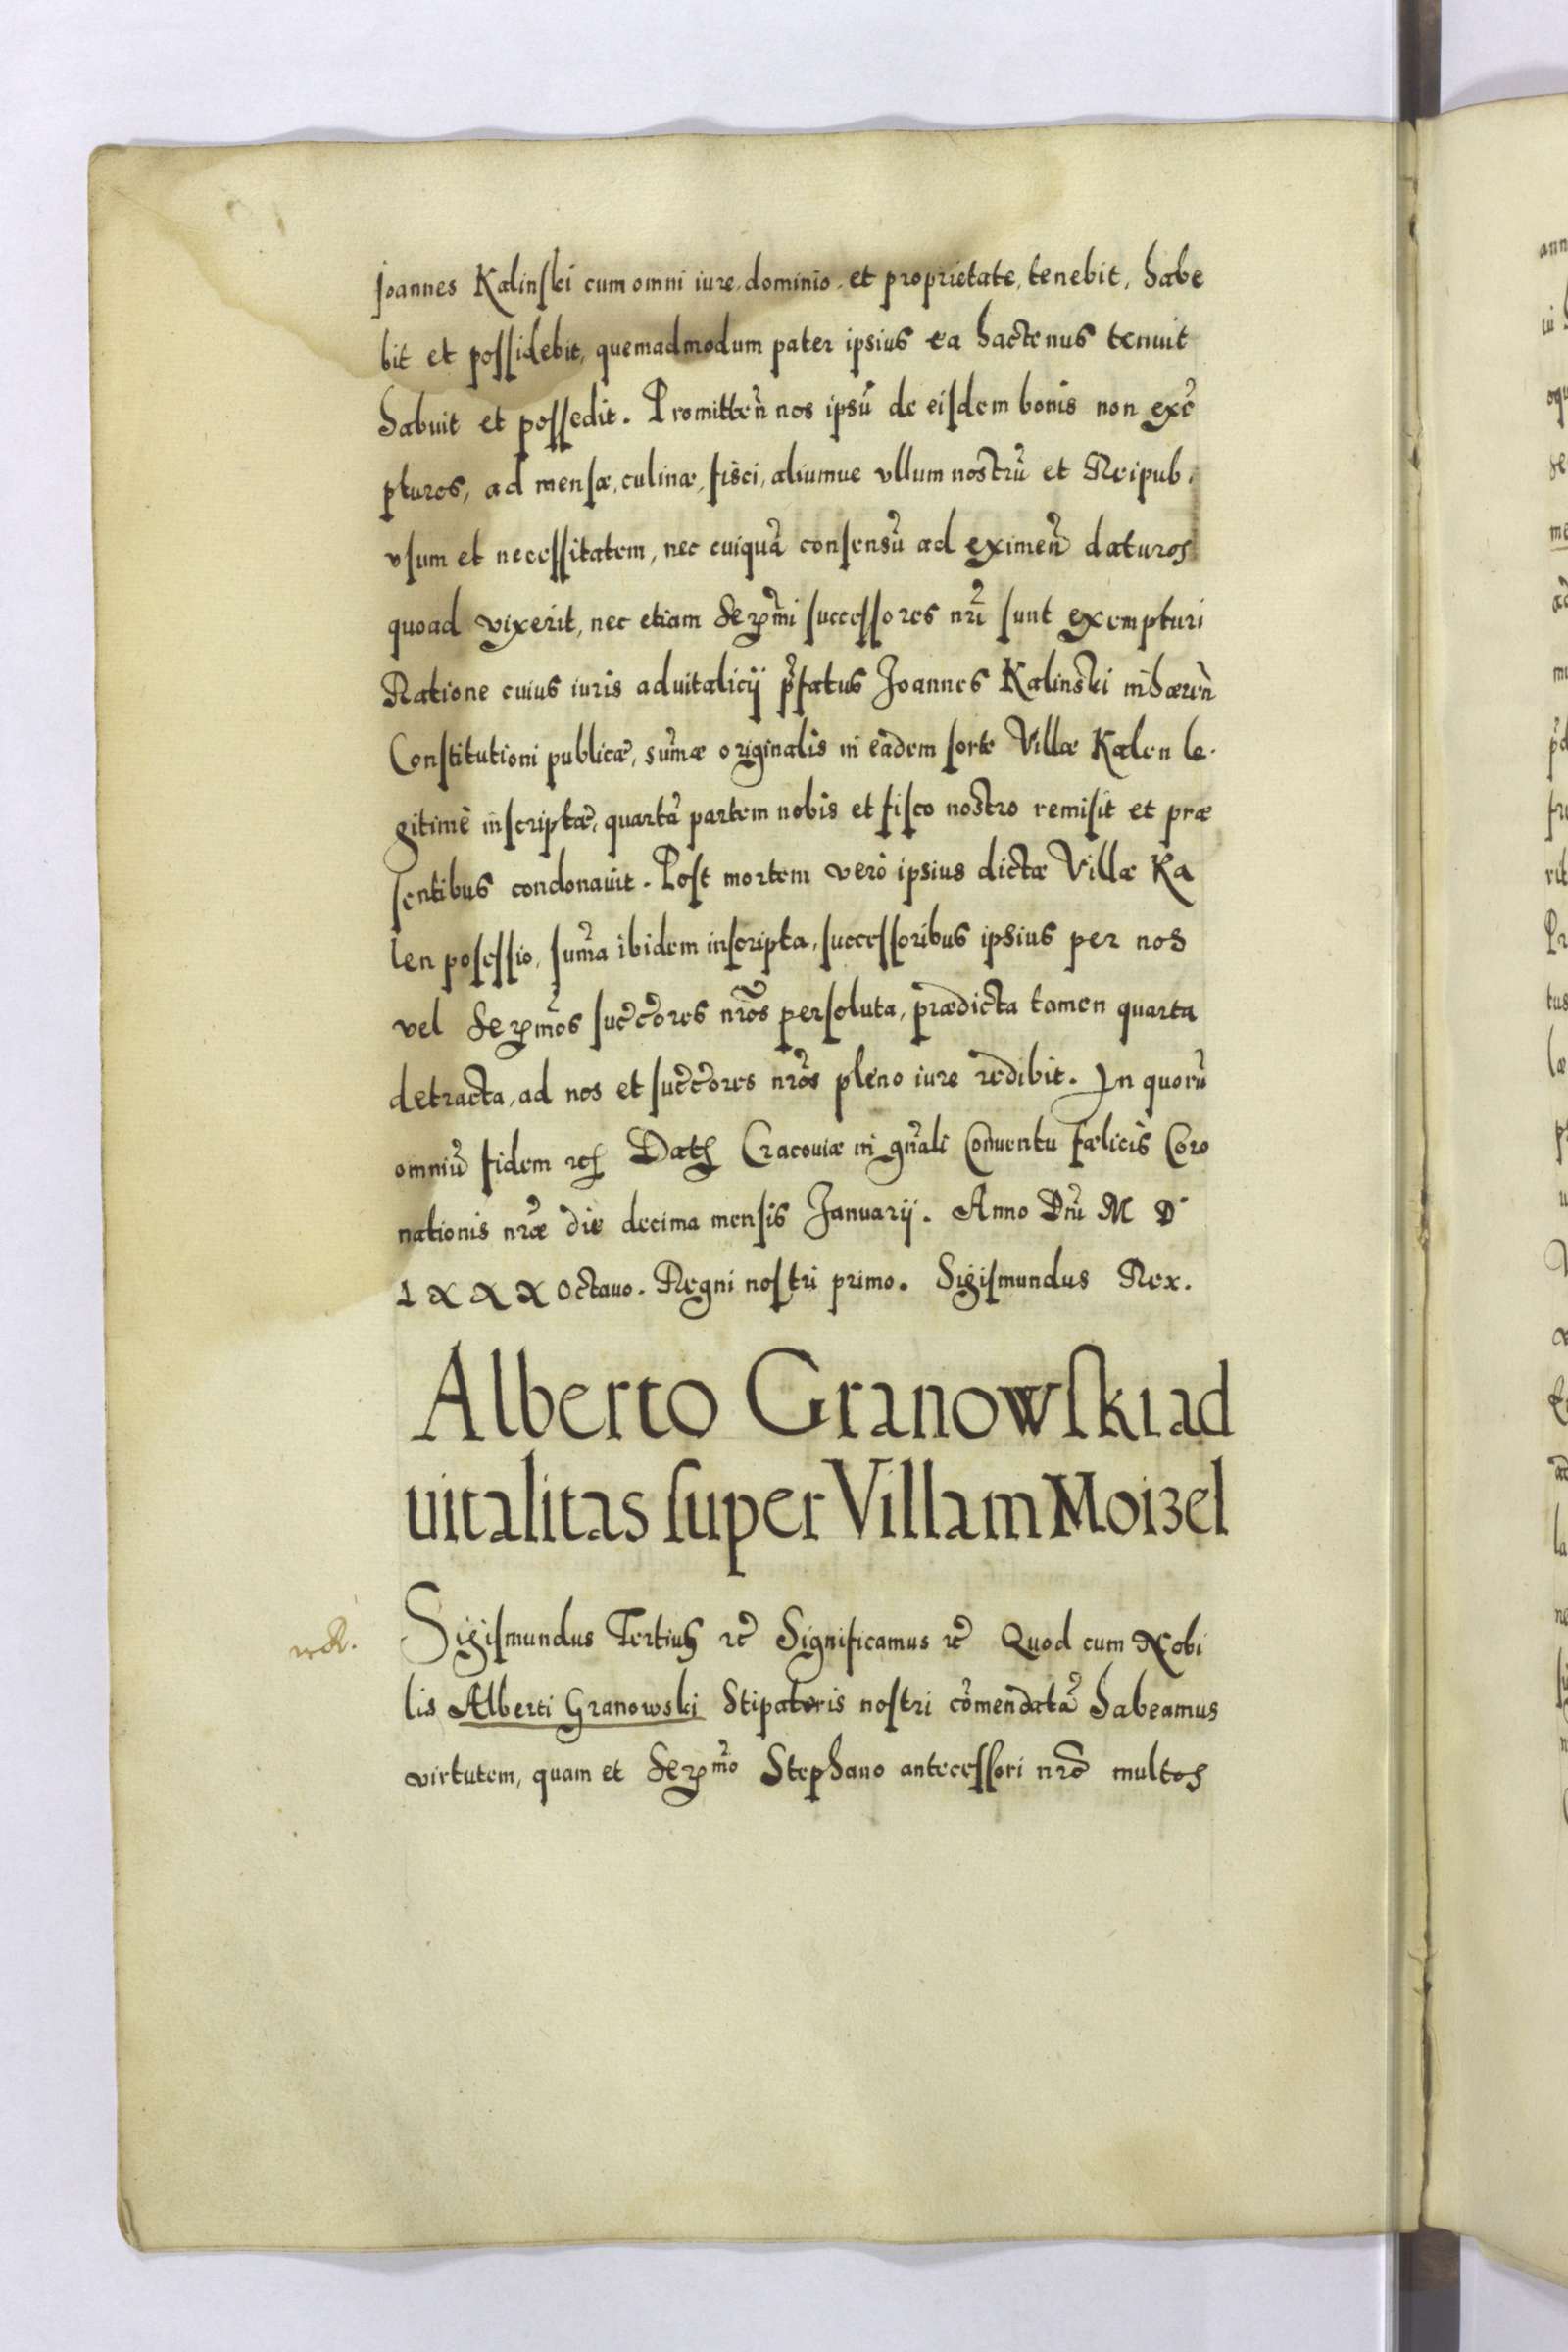 Joannes Kalinski cum omni iure, dominio, et proprietate, tenebit, habe
bit et possidebit, quemadmodum pater ipsius ea hactenus tenuit
habuit et possedit. Promitteñ nos ipsũ de eisdem bonis non exẽ
pturos, ad mensæ, culinæ, fisci, aliumue vllum nostrũ et Reipub.
vsum et necessitatem, nec cuiquã consensũ ad eximeñ daturos
quoad vixerit, nec etiam Serm̃i successores nr̃i sunt exempturi
Ratione cuius iuris aduitalicij p̃fatus Joannes Kalinski inhæreñ
Constitutioni publicæ, sum̃æ originalis in eadem sorte Villæ Kalen le-
gitimè inscriptæ, quartã partem nobis et fisco nostro remisit et præ
sentibus condonauit. Post mortem verò ipsius dictæ Villæ Ka
len posessio, sum̃a ibidem inscripta, successoribus ipsius per nos
vel Serm̃os succ̃ores nr̃os persoluta, prædicta tamen quarta
detracta, ad nos et succ̃ores nr̃os pleno iure redibit. In quorũ
omniũ fidem etc̃ Dat̃ Cracouiæ in gñali Conuentu fœlicis Coro
nationis nr̃æ die decima mensis Januarij. Anno Dñi M D
L X X X Octauo. Regni nostri primo. Sigismundus Rex.
Alberto Granowski ad
uitalitas super Villam Moizel
Sigismundus Tertius etc̃ Significamus etc̃ Quod cum Nobi
lis Alberti Granowski Stipatoris nostri com̃endatã habeamus
virtutem, quam et Serm̃o Stephano antecessori nr̃o multos